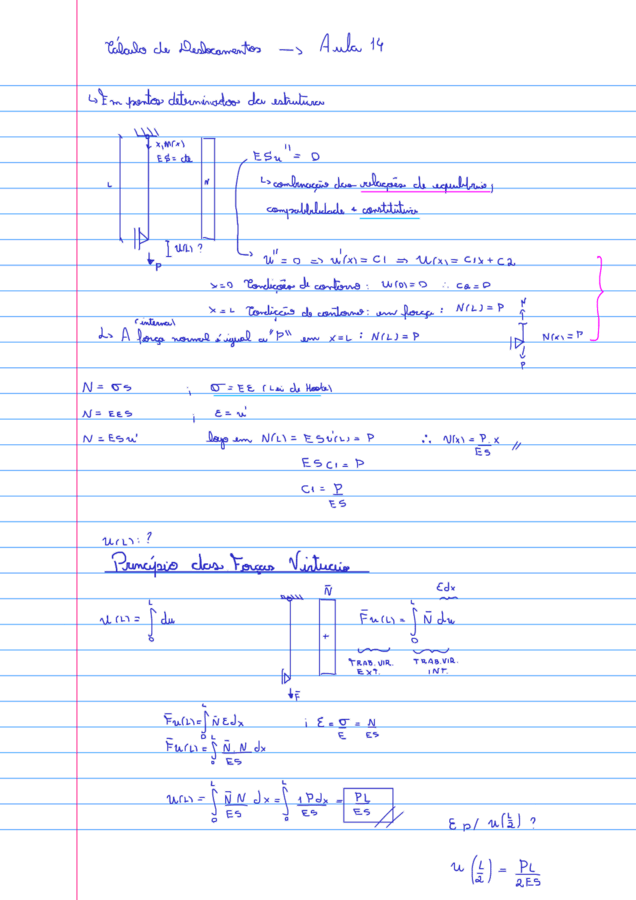 Cálculo de Deslocamentos → Aula 14
↳ Em pontos determinados da estrutura
x, u(x)
ES = cte
L
N
u(L) ?
P
ESu'' = 0
↳ combinação das relações de equilíbrio,
compatibilidade e constitutiva
u'' = 0 ⇒ u'(x) = C1 ⇒ u(x) = C1x + C2
x=0 Condições de contorno: u(0)=0 ∴ C2=0
x=L Condição de contorno: em força: N(L)=P
(interna)
↳ A força normal é igual a "P" em x=L : N(L)=P
N
N(x)=P
P
N = σS ; σ = Eε (Lei de Hooke)
N = EεS ; ε = u'
N = ESu' logo em N(L) = ESu'(L) = P ∴ u(x) = P/ES x //
ESC1 = P
C1 = P/ES
u(L): ?
Princípio das Forças Virtuais
u(L) = ∫₀ᴸ du
N̄
+
F̄
εdx
F̄u(L) = ∫₀ᴸ N̄ du
TRAB. VIR. EXT.
TRAB. VIR. INT.
F̄u(L) = ∫₀ᴸ N̄ εdx ; ε = σ/E = N/ES
F̄u(L) = ∫₀ᴸ N̄ N/ES dx
u(L) = ∫₀ᴸ N̄N/ES dx = ∫₀ᴸ 1P/ES dx = PL/ES //
E p/ u(L/2) ?
u(L/2) = PL/2ES